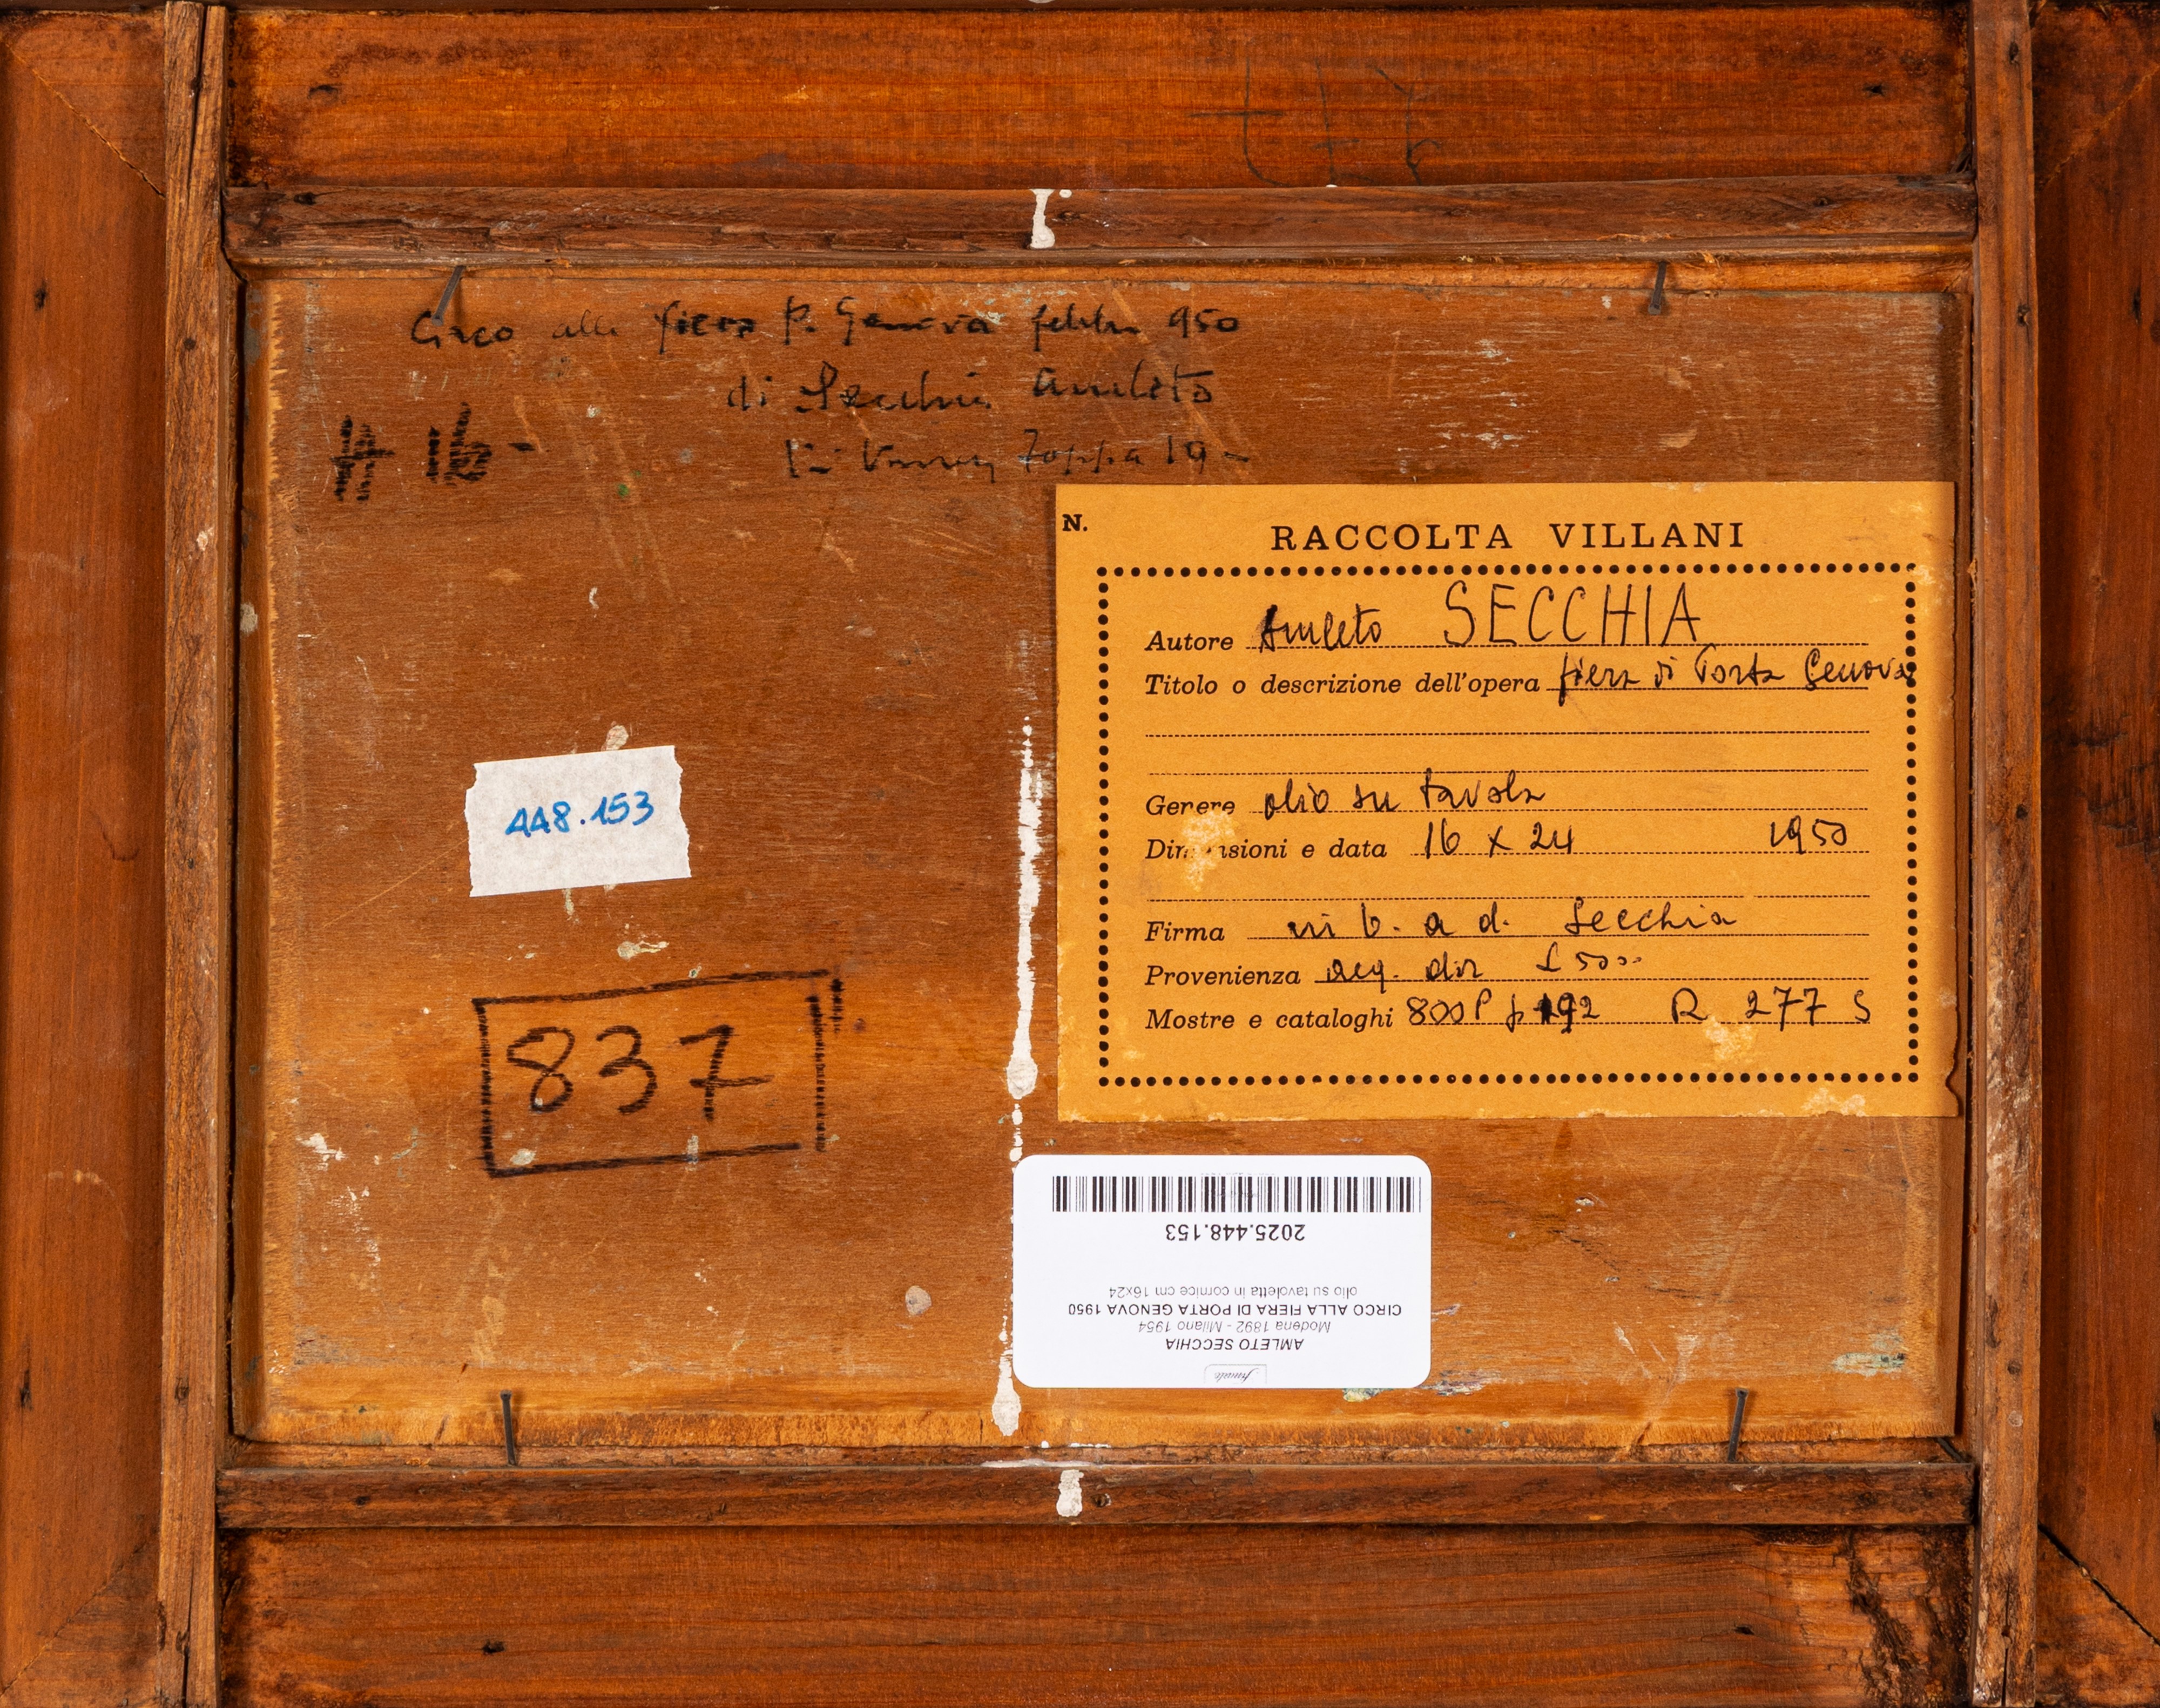 Circo alla fiera P. Genova febbr 950
di Secchia Amleto
Zoppa 19 -
N.
RACCOLTA VILLANI
Autore Amleto SECCHIA
Titolo o descrizione dell'opera fiera di Porta Genova
Genere olio su tavola
Dimensioni e data 16 x 24 1950
Firma in b. a d. Secchia
Provenienza acq. dir £ 5000
Mostre e cataloghi 800 P p 192 R 277 S
448.153
837
2025.448.153
olio su tavoletta in cornice cm 16x24
CIRCO ALLA FIERA DI PORTA GENOVA 1950
Modena 1892 - Milano 1954
AMLETO SECCHIA